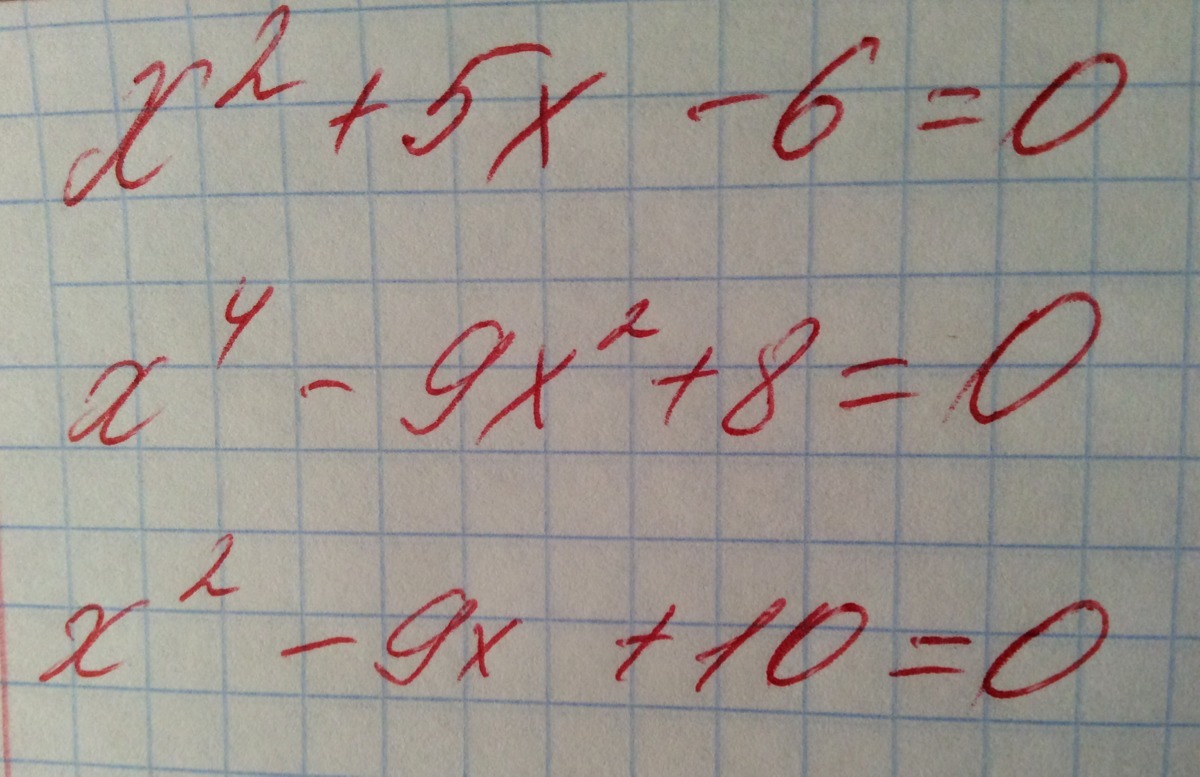 x² + 5x - 6 = 0
x⁴ - 9x² + 8 = 0
x² - 9x + 10 = 0